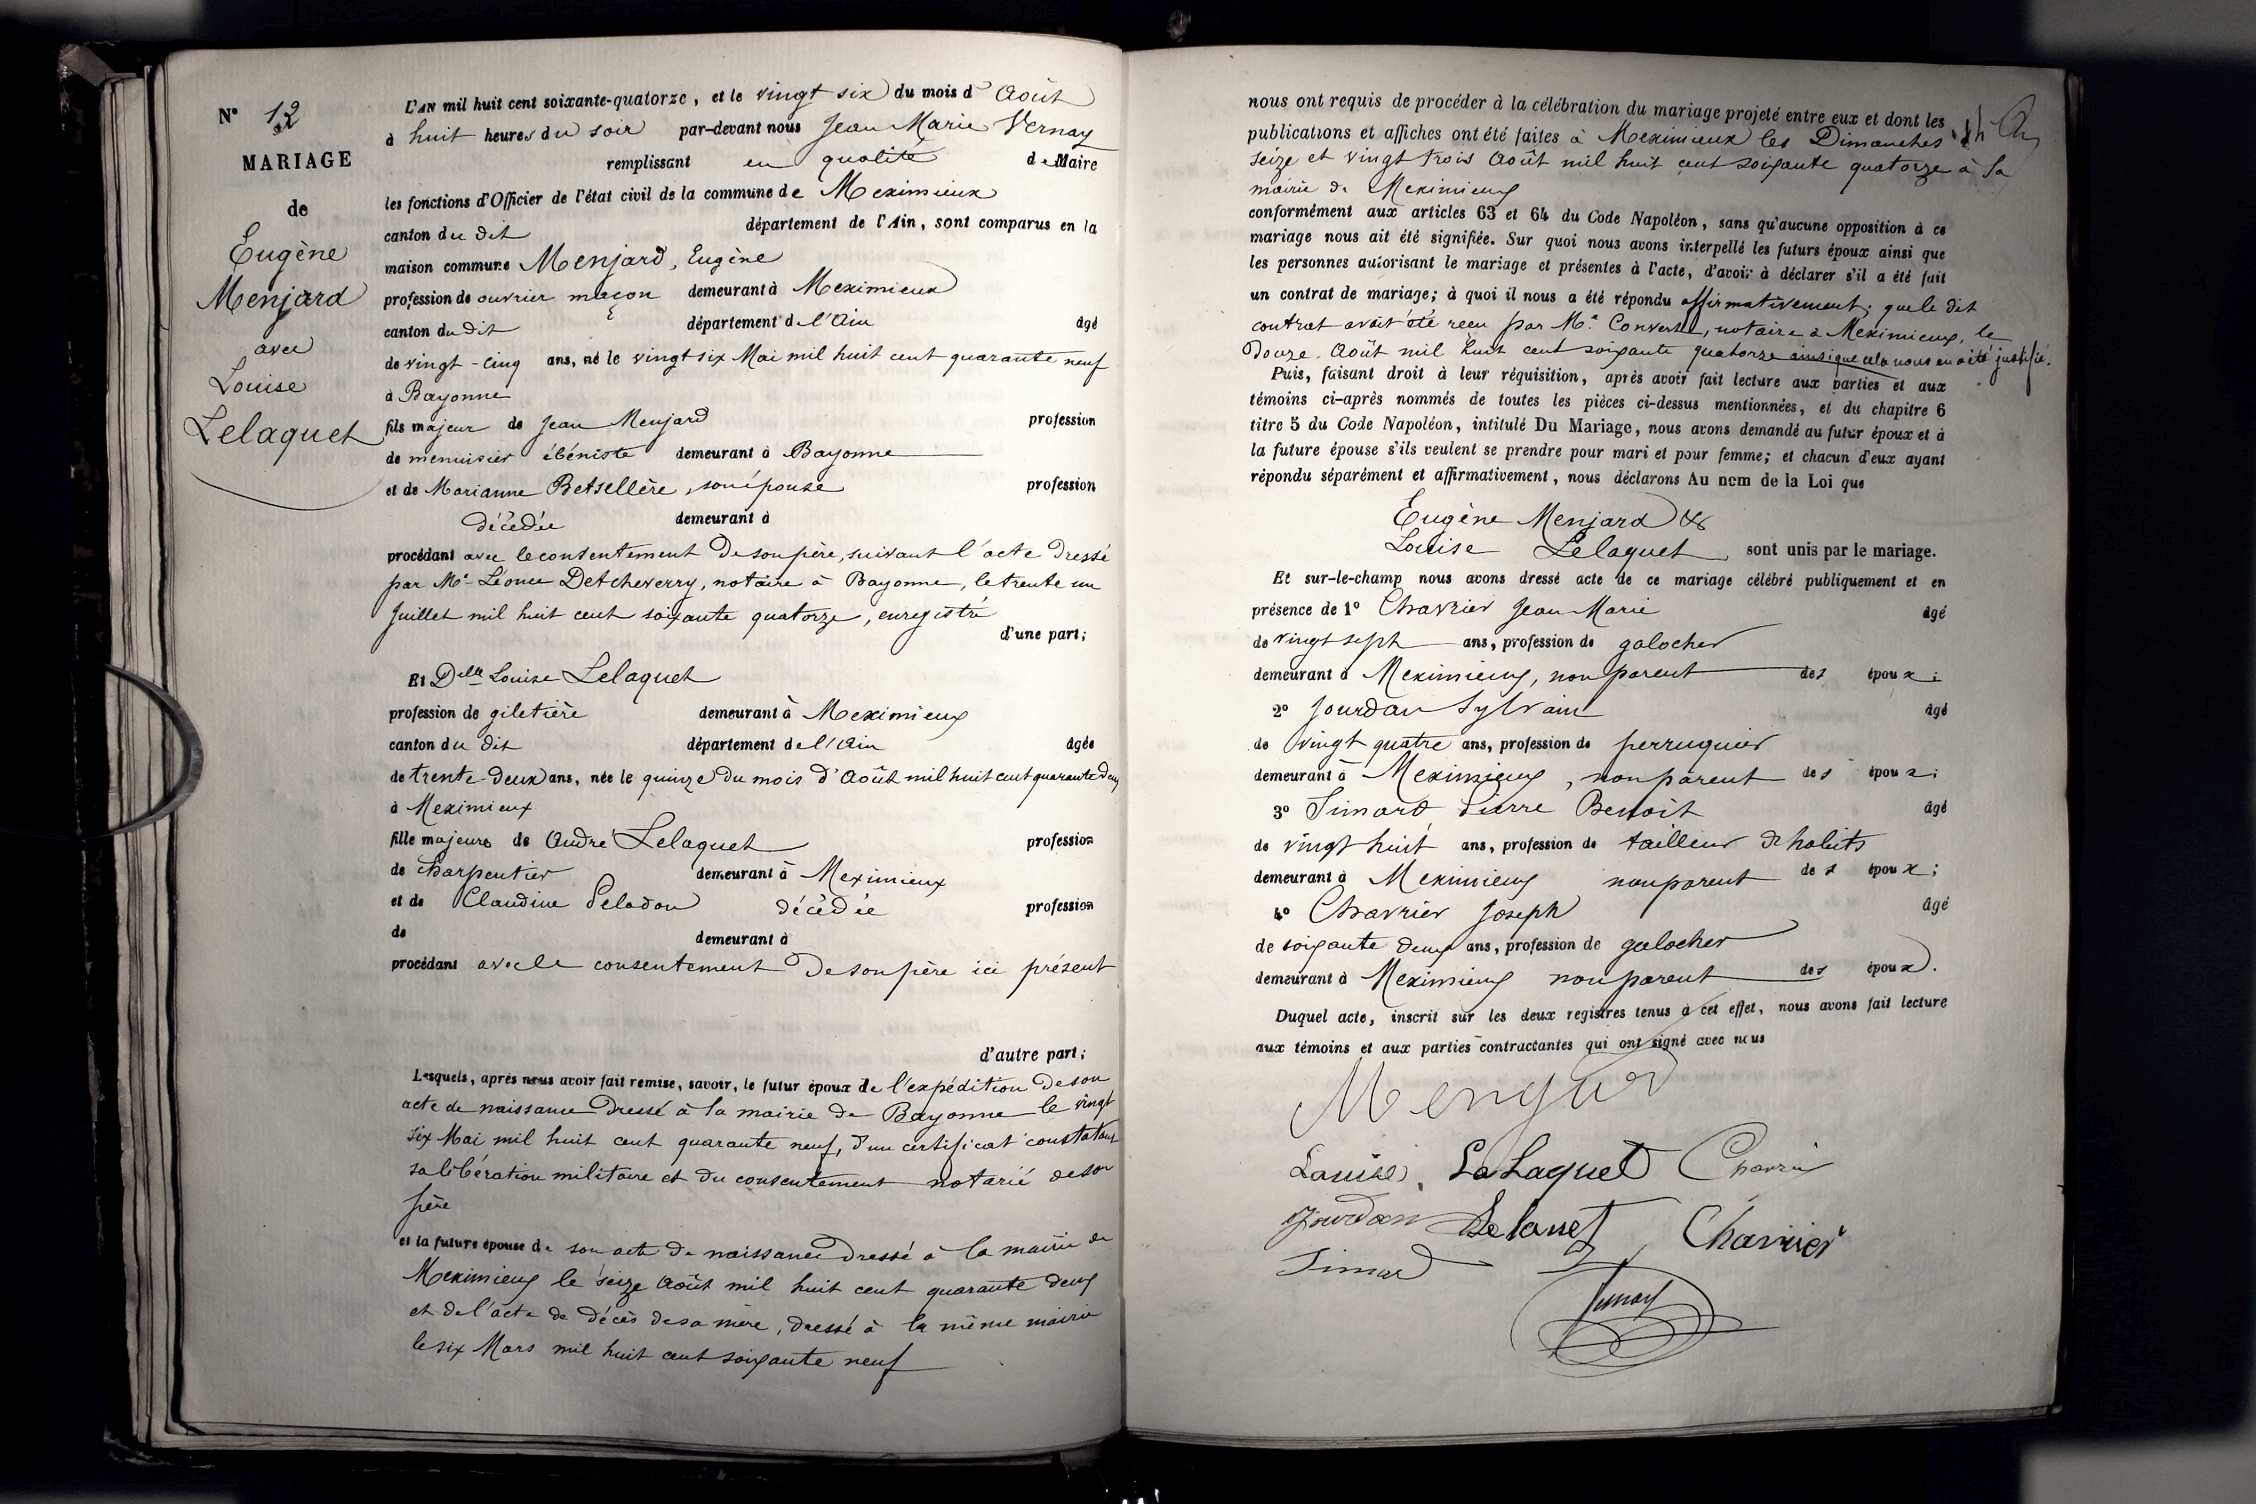 N° 12
MARIAGE
de
Eugène
Menjard
avec
Louise
Lelaquet
L'AN mil huit cent soixante-quatorze, et le vingt six du mois d'Août
à huit heures du soir par-devant nous Jean Marie Vernay
remplissant en qualité de Maire
les fonctions d'Officier de l'état civil de la commune de Meximieux
canton du dit département de l'Ain, sont comparus en la
maison commune Menjard, Eugène
profession de ouvrier maçon demeurant à Meximieux
canton du dit département de l'Ain âgé
de vingt-cinq ans, né le vingt six Mai mil huit cent quarante neuf
à Bayonne
fils majeur de Jean Menjard profession
de menuisier ébéniste demeurant à Bayonne
et de Marianne Betsellère, son épouse profession
décédée demeurant à
procédant avec le consentement de son père, suivant l'acte dressé
par Me Léonce Detcheverry, notaire à Bayonne, le trente un
Juillet mil huit cent soixante quatorze, enregistré
d'une part;
Et Delle Louise Lelaquet
profession de giletière demeurant à Meximieux
canton du dit département de l'Ain âgée
de trente-deux ans, née le quinze du mois d'Août mil huit cent quarante deux
à Meximieux
fille majeure de André Lelaquet profession
de charpentier demeurant à Meximieux
et de Claudine Peladon décédée profession
de demeurant à
procédant avec le consentement de son père ici présent
d'autre part;
Lesquels, après nous avoir fait remise, savoir, le futur époux de l'expédition de son
acte de naissance dressé à la mairie de Bayonne le vingt
six Mai mil huit cent quarante neuf, d'un certificat constatant
sa libération militaire et du consentement notarié de son
père
et la future épouse de son acte de naissance dressé à la mairie de
Meximieux le seize Août mil huit cent quarante deux
et de l'acte de décès de sa mère, dressé à la même mairie
le six Mars mil huit cent soixante neuf
nous ont requis de procéder à la célébration du mariage projeté entre eux et dont les
publications et affiches ont été faites à Meximieux les Dimanches
seize et vingt trois Août mil huit cent soixante quatorze à la
mairie de Meximieux
conformément aux articles 63 et 64 du Code Napoléon, sans qu'aucune opposition à ce
mariage nous ait été signifiée. Sur quoi nous avons interpellé les futurs époux ainsi que
les personnes autorisant le mariage et présentes à l'acte, d'avoir à déclarer s'il a été fait
un contrat de mariage; à quoi il nous a été répondu affirmativement; que le dit
contrat avait été reçu par Me Convert, notaire à Meximieux, le
douze Août mil huit cent soixante quatorze ainsi que cela nous en a été justifié.
Puis, faisant droit à leur réquisition, après avoir fait lecture aux parties et aux
témoins ci-après nommés de toutes les pièces ci-dessus mentionnées, et du chapitre 6
titre 5 du Code Napoléon, intitulé Du Mariage, nous avons demandé au futur époux et à
la future épouse s'ils veulent se prendre pour mari et pour femme; et chacun d'eux ayant
répondu séparément et affirmativement, nous déclarons Au nom de la Loi que
Eugène Menjard &
Louise Lelaquet sont unis par le mariage.
Et sur-le-champ nous avons dressé acte de ce mariage célébré publiquement et en
présence de 1° Chavrier Jean Marie âgé
de vingt sept ans, profession de galocher
demeurant à Meximieux, non parent des époux;
2° Jourdan Sylvain âgé
de vingt quatre ans, profession de perruquier
demeurant à Meximieux, non parent des époux;
3° Simard Pierre Benoît âgé
de vingt huit ans, profession de tailleur d'habits
demeurant à Meximieux non parent des époux;
4° Chavrier Joseph âgé
de soixante deux ans, profession de galocher
demeurant à Meximieux non parent des époux.
Duquel acte, inscrit sur les deux registres tenus à cet effet, nous avons fait lecture
aux témoins et aux parties contractantes qui ont signé avec nous
Louise LeLaquet
Jourdan Chavrier
Simard
Vernay